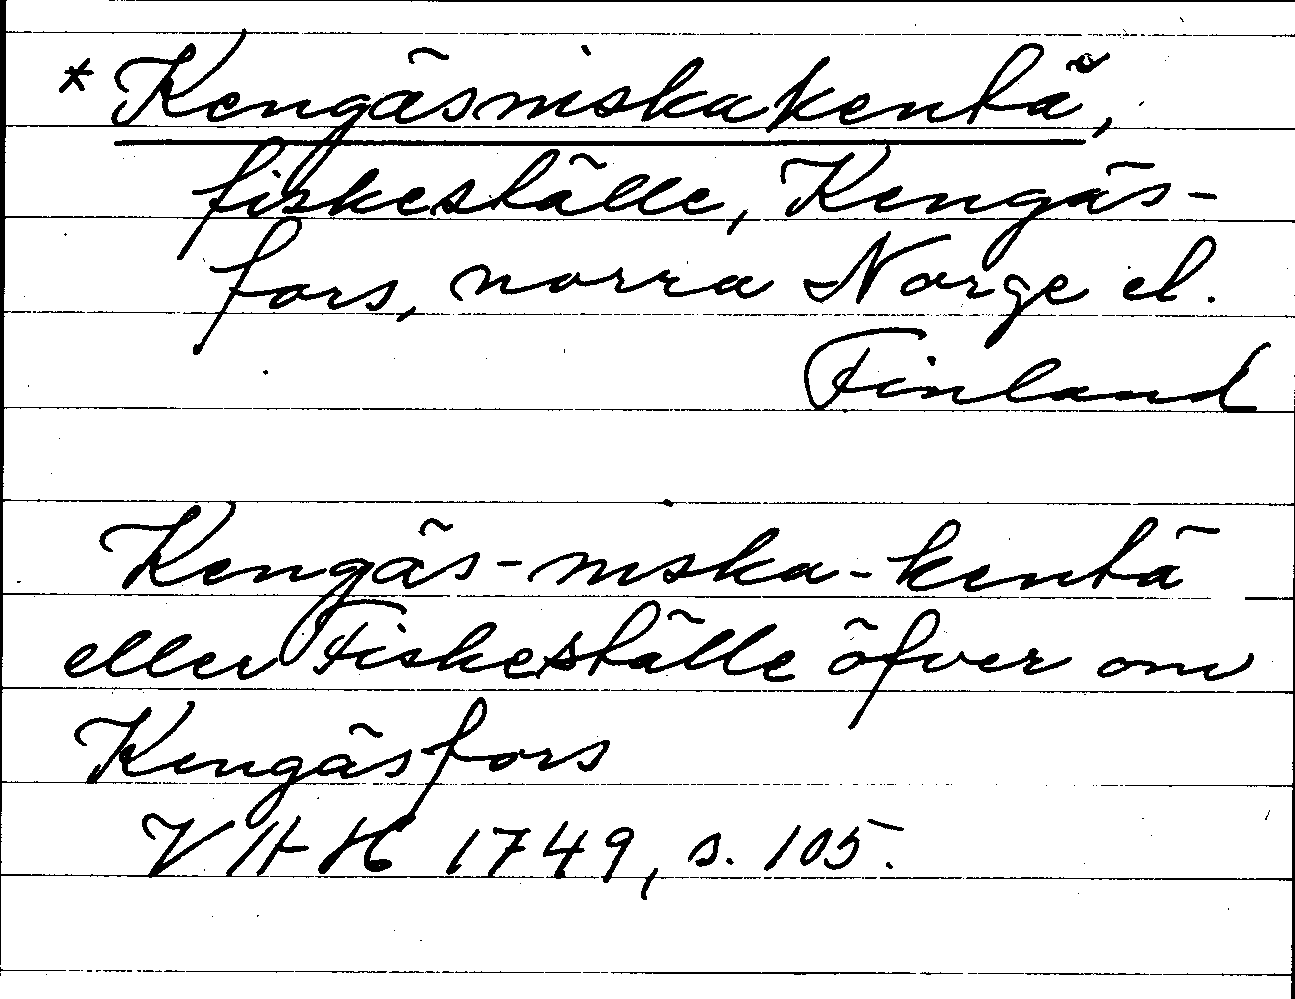 * Kengäsniskakentä,
fiskeställe, Kengäs-
fors, norra Norge el.
Finland
Kengäs-niska-kentä
eller Fiskeställe öfver om
Kengäsfors
VAH 1749, s. 105.